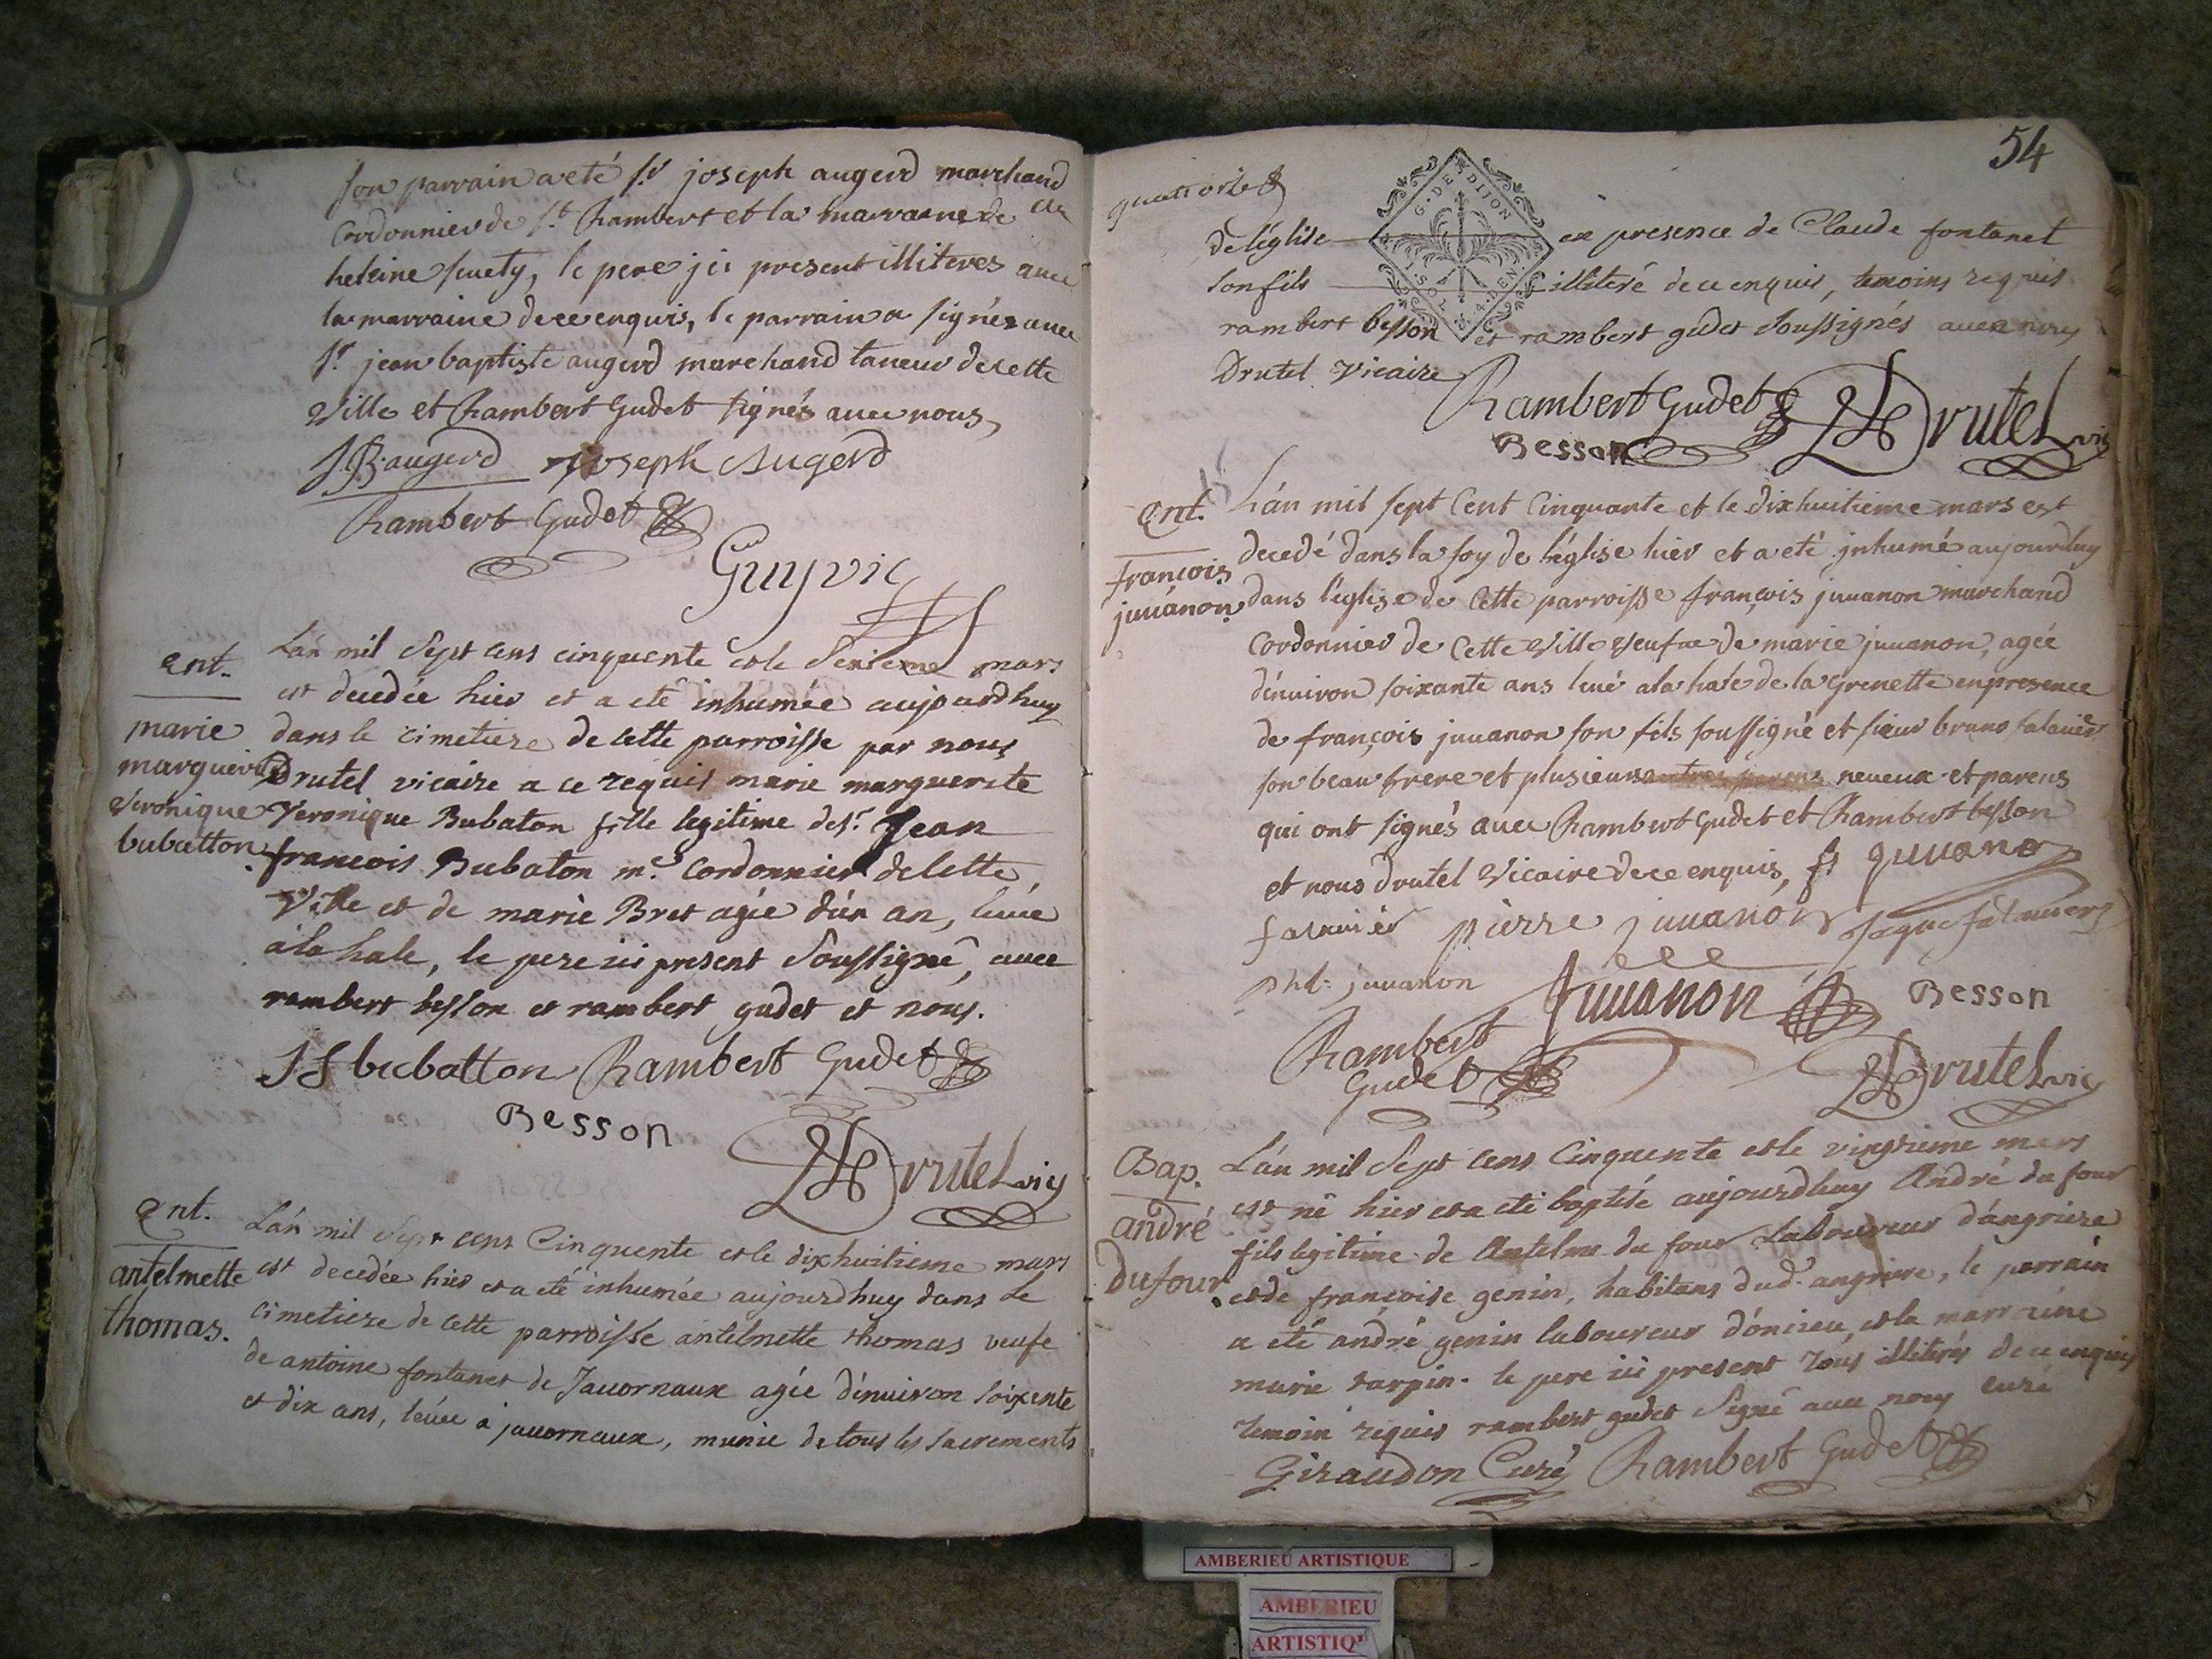 son parrain a eté sr joseph augerd marchand
Cordonnier de st Rambert et la marraine de elle
heleine suety, le pere jci present illiteres avec
la marraine de ce enquis, le parrain a signés avec
sr jean baptiste augerd marchand taneur de cette
Ville et Rambert Gudet signés avec nous,
JB: augerd Joseph Augerd
Rambert Gudet
Guy vic
ent.
marie
marguerite
Veronique
bubatton.
L'án mil Sept cens cinquente et le Seizieme mars
est decedée hier et a eté inhumée aujourdhuy
dans le cimetiere de cette parroisse par nous
Drutel vicaire a ce requis marie marguerite
Veronique Bubaton fille legitime de sr. Jean
francois Bubaton me. Cordonnier de cette
Ville et de marie Bret agée d'ún an, leuée
à la hale, le pere ici present Soussigné, avec
rambert besson et rambert gudet et nous.
JF bubatton Rambert Gudet
Besson
Drutel vic
ent.
antelmette
thomas.
L'án mil Sept cens Cinquente et le dixhuitieme mars
est decedée hier et a eté inhumée aujourdhuy dans le
cimetiere de cette parroisse antelmette thomas veufe
de antoine fontanet de Javornaux agée d'énuiron soixente
et dix ans, leuée à jauornaux, munie de tous les sacrements
54
quatorze
G. DE DIJON
1. SOL. 4. DEN.
de l'église en presence de Claude fontanet
son fils illiteré de ce enquis, temoins requis
rambert besson et rambert gudet Soussignés avec nous
Drutel Vicaire
Rambert Gudet
Besson
Drutel vic
ent.
françois
juuánon
L'án mil sept Cent Cinquante et le dixhuitieme mars est
decedé dans la foy de l'église hier et a eté jnhumé aujourdhuy
dans l'église de Cette parroisse françois juuanon marchand
Cordonnier de Cette Ville Veufue de marie juuanon, agée
d'énuiron soixante ans leué a la hale de la Grenette en presence
de françois juuanon son fils soussigné et sieur bruno falauier
son beau frere et plusieurs neueux et parens
qui ont signés avec Rambert Gudet et Rambert besson
et nous drutel Vicaire de ce enquis, fs juuanon
falauier pierre juuanon falauier
phl: juuanon Juuanon Besson
Rambert
Gudet
Drutel vic
Bap.
andré
dufour.
L'án mil Sept cens Cinquente et le vingtieme mars
est né hier et a eté baptisé aujourdhuy André du four
fils legitime de Antelme du four Laboureur d'ángriere
et de françoise genin, habitans dud. angriere, le parrain
a eté andré genin laboureur d'óncieu, et la marraine
marie tarpin. le pere ici present tous illiterés de ce enquis
temoin requis rambert gudet Signé avec nous curé
Giraudon Curé Rambert Gudet
AMBERIEU ARTISTIQUE
AMBERIEU
ARTISTIQ